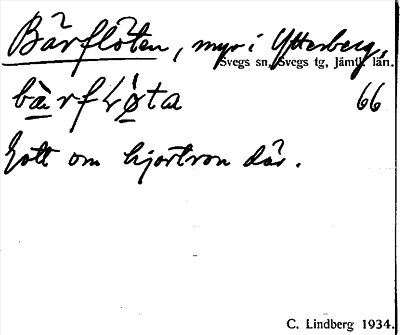 Bärflöten, myr i Ytterberg,
Svegs sn, Svegs tg, Jämtl. län.
bàrfLøta 66
Gott om hjortron där.
C. Lindberg 1934.